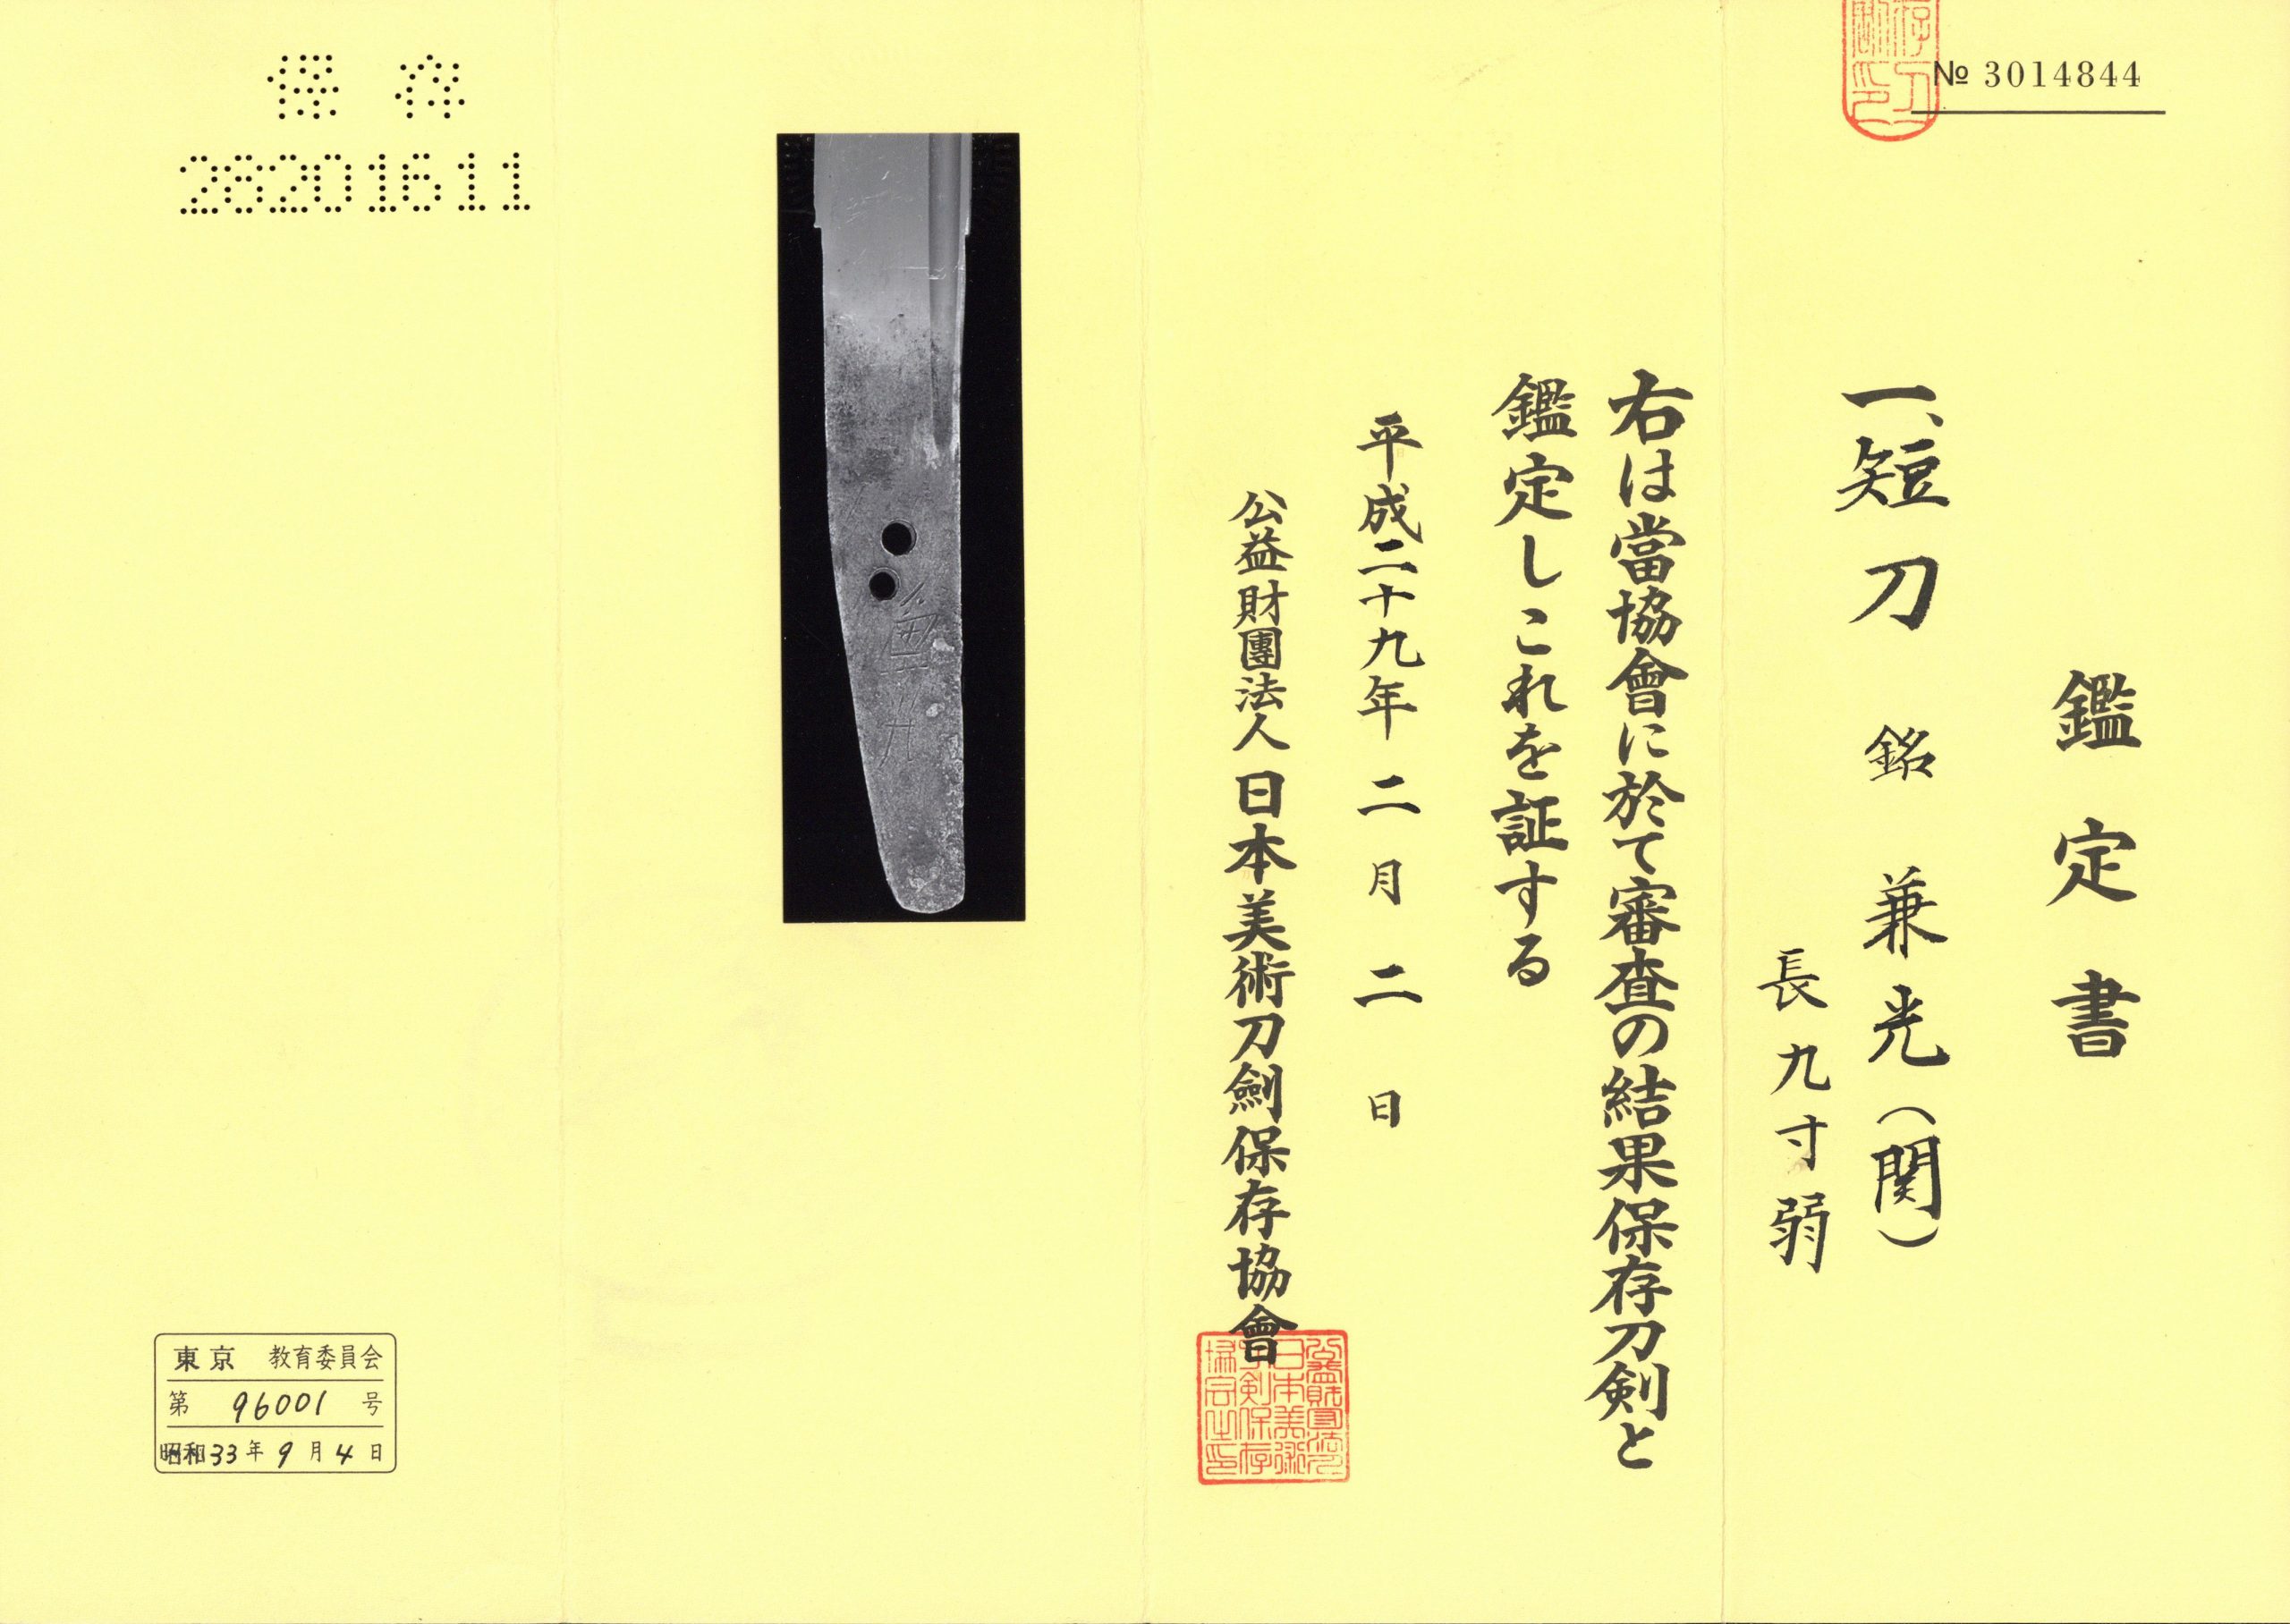 № 3014844
鑑定書
一、短刀 銘 兼光(関)
長九寸弱
右は當協會に於て審査の結果保存刀剣と
鑑定しこれを証する
平成二十九年二月二日
公益財團法人日本美術刀劍保存協會
公益財団法人
日本美術
刀剣保存
協会之印
兼光
保存
26201611
東京 教育委員会
第 96001 号
昭和33年9月4日